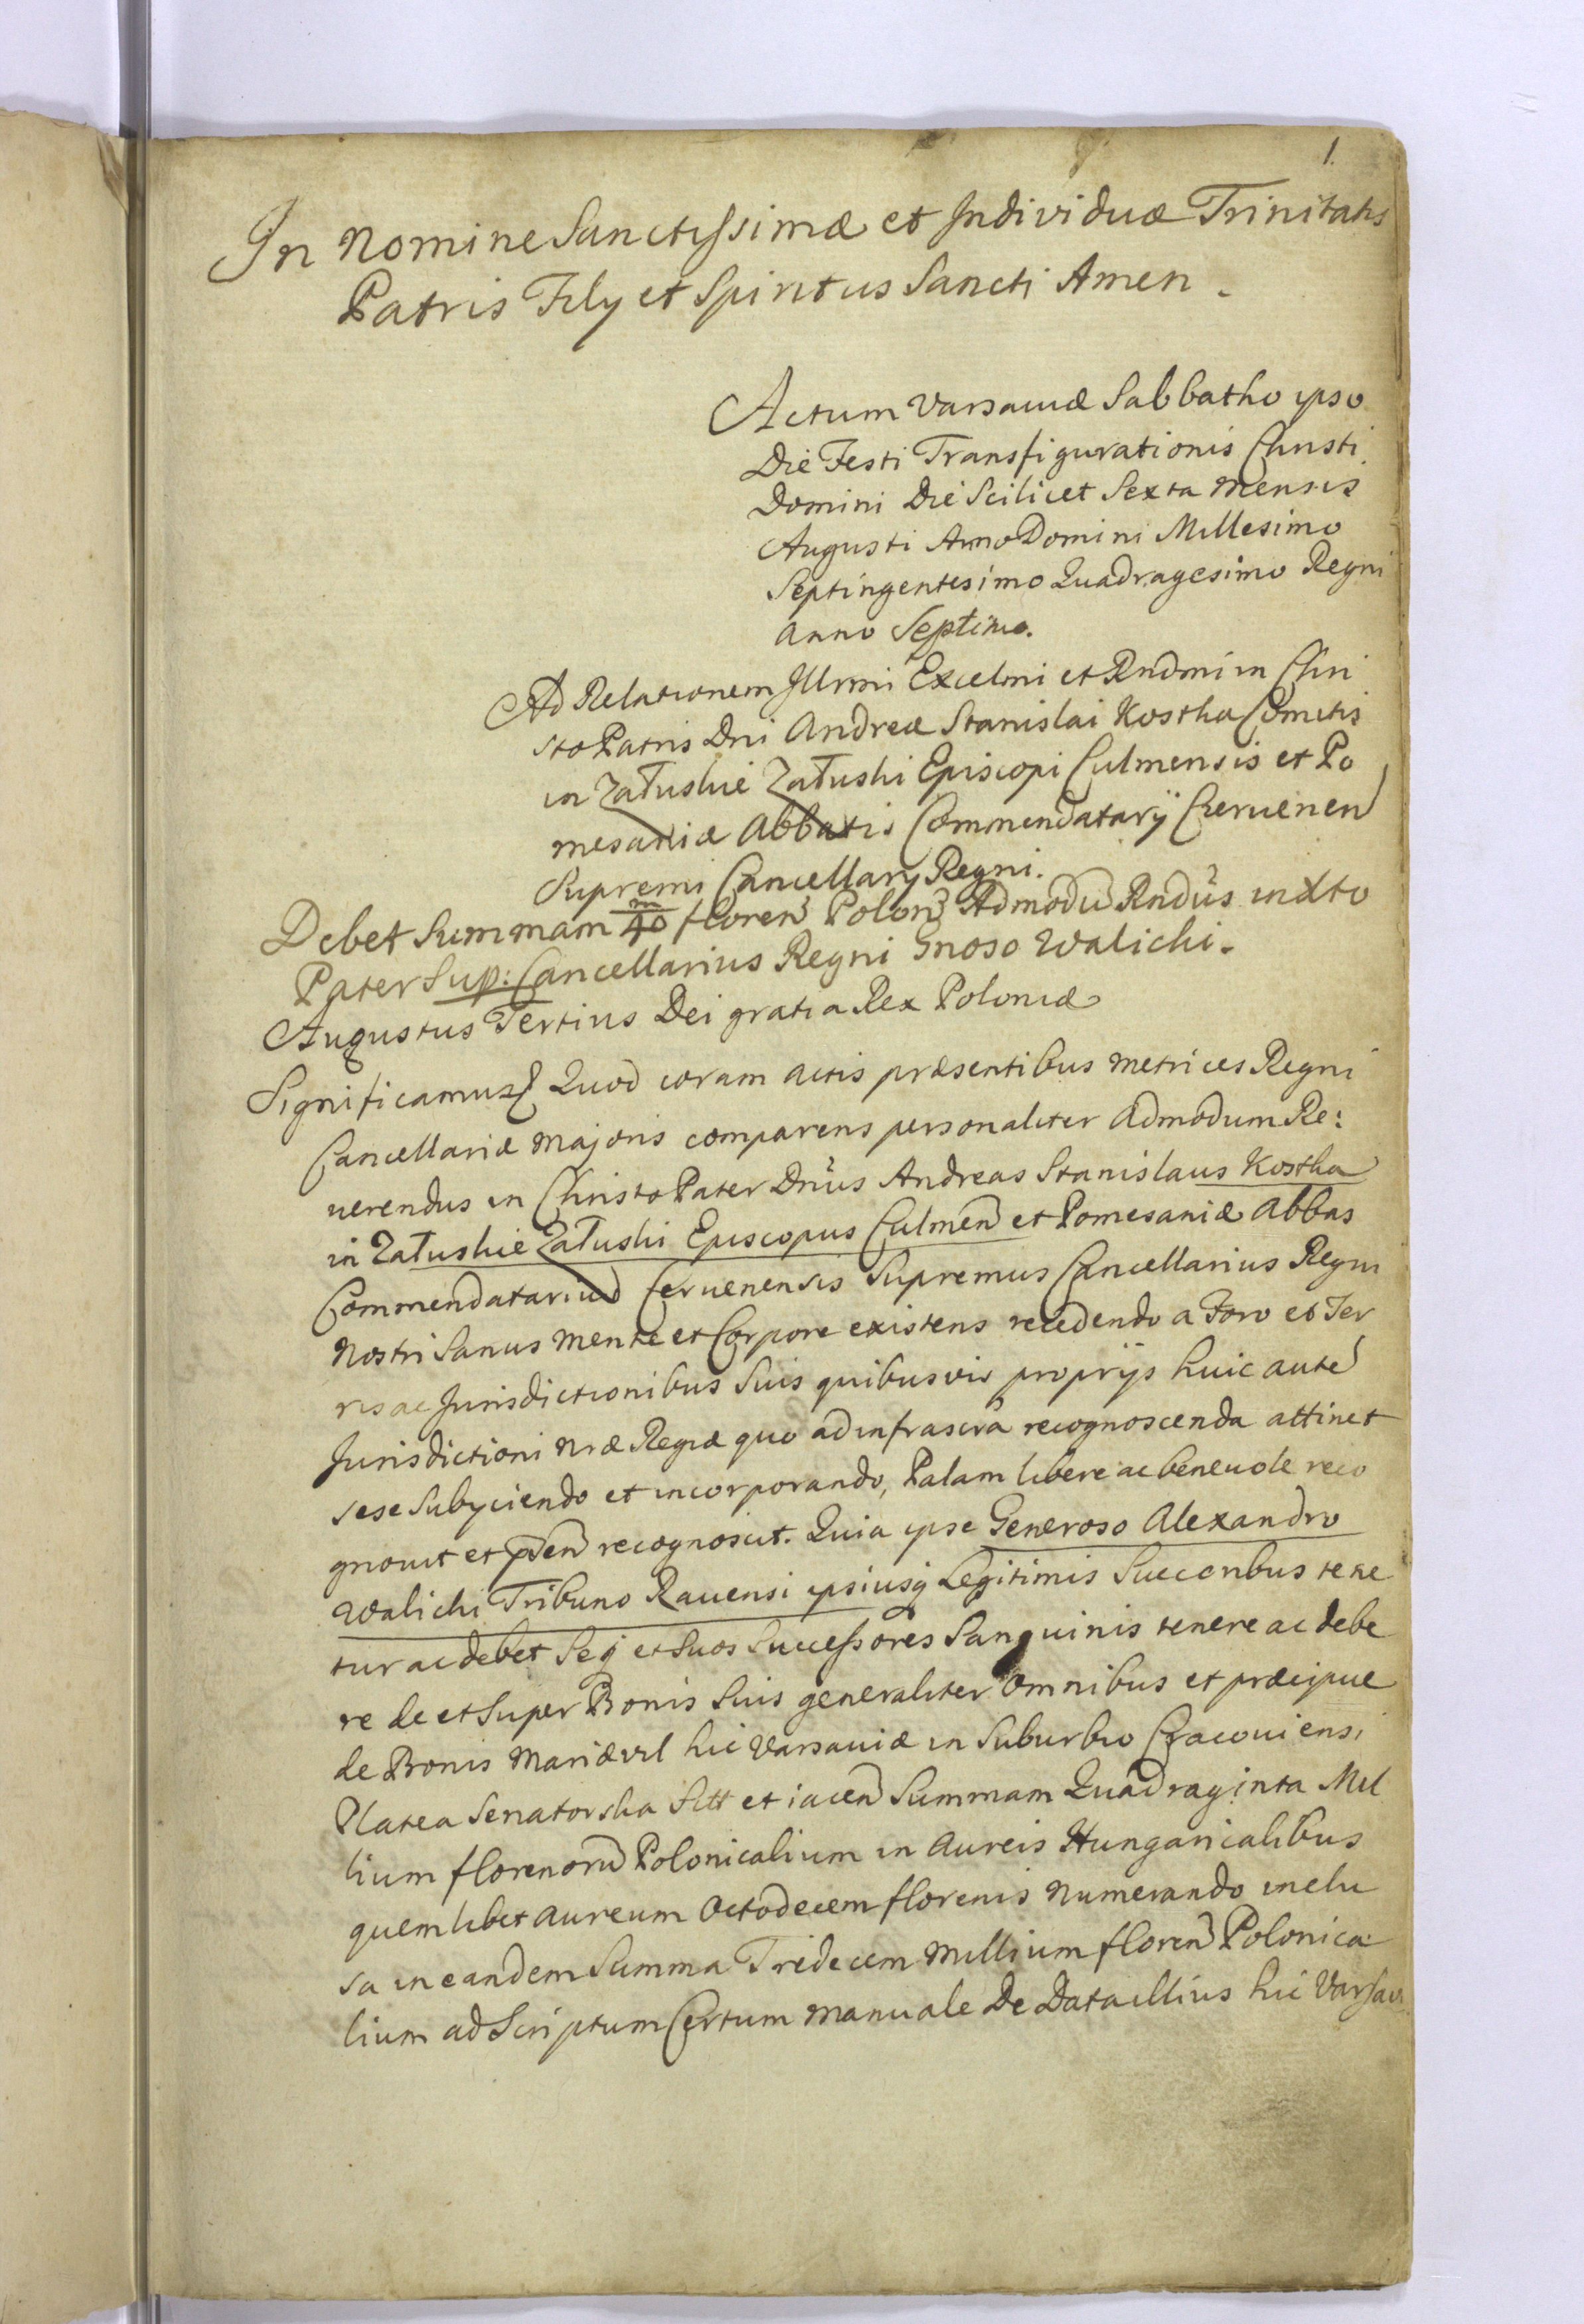 1.
In Nomine Sanctissimæ et Individuæ Trinitatis
Patris Filij et Spiritus Sancti Amen.
Actum Varsaviæ Sabbatho ipso
Die Festi Transfigurationis Christi
Domini Die Scilicet Sexta Mensis
Augusti Anno Domini Millesimo
Septingentesimo Quadragesimo Regni
anno Septimo.
Ad Relationem Illrmi Excelmi et Rndmi in Chri
sto Patris Dni Andreæ Stanislai Kostka Comitis
in Załuskie Załuski Episcopi Culmensis et Po
mesaniæ Abbatis Commendatarÿ Czervenen
Supremi Cancellarij Regni.
Debet Summam 40/m floren Polon Admodu Rndus in Xto
Pater Sup: Cancellarius Regni Gnoso Walicki.
Augustus Tertius Dei gratia Rex Poloniæ
Significamus Quod coram actis præsentibus Metrices Regni
Cancellariæ Majoris comparens personaliter Admodum Re:
uerendus in Christo Pater Dnus Andreas Stanislaus Kostka
in Załuskie Załuski Episcopus Culmen et Pomesaniæ Abbas
Commendatarius Cervenensis Supremus Cancellarius Regni
Nostri Sanus Mente et Corpore existens recedendo a Foro et Ter
ris ac Jurisdictionibus Suis quibusvis proprijs huic aute
Jurisdictioni Nræ Regiæ quo ad infrascra recognoscenda attinet
sese Subijciendo et incorporando, Palam libere ac beneuole reco
gnouit et pnen recognoscit. Quia ipse Generoso Alexandro
Walicki Tribuno Rauensi ipsiusq Legitimis Succeribus tene
tur ac debet Seq et Suos Successores Sanguinis tenere ac debe
re de et Super Bonis Suis generaliter Omnibus et præcipue
de Bonis Mariævil hic Varsaviæ in Suburbio Cracouiensi
Platea Senatorska Sitt et iacen Summam Quadraginta Mil
lium florenoru Polonicalium in Aureis Hungaricalibus
quemlibet Aureum Octodecem florenis Numerando inclu
sa in eandem Summa Tredecem Millium floren Polonica
lium ad Scriptum Certum Manuale De Data illius hic Varsav